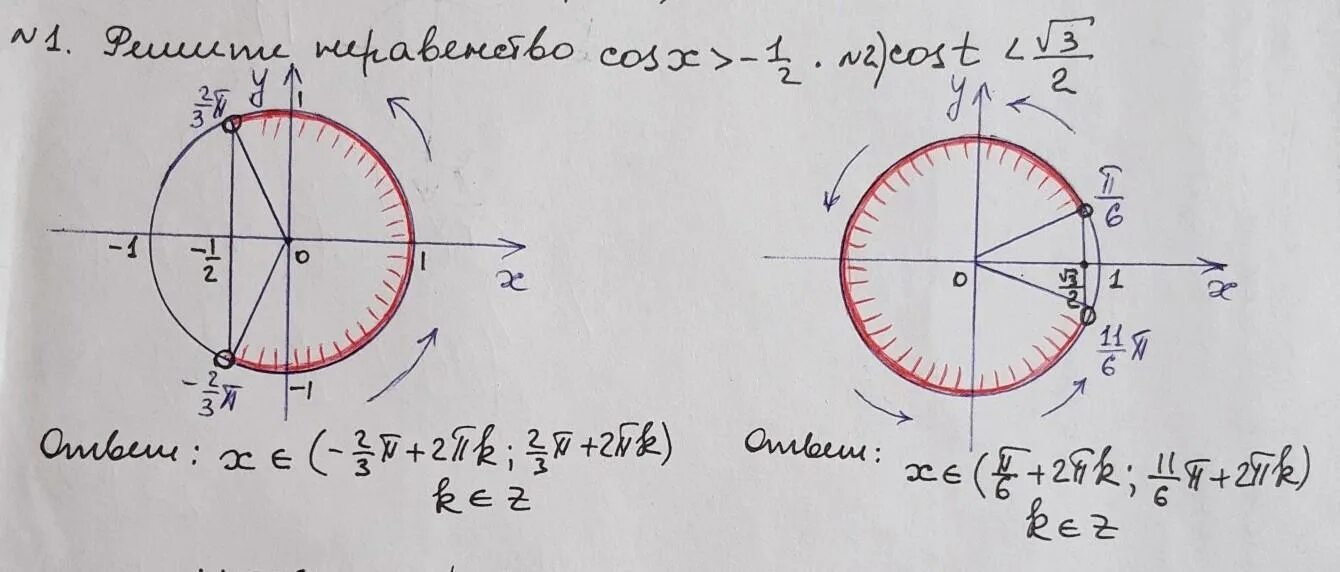 №1. Решите неравенство cosx > -1/2. №2) cost < √3/2
2/3π y 1
-1 -1/2 0 1 x
-2/3π -1
y
π/6
0 √3/2 1 x
11/6π
Ответ: x ∈ (-2/3π + 2πk; 2/3π + 2πk)
k ∈ z
Ответ: x ∈ (π/6 + 2πk; 11/6π + 2πk)
k ∈ z